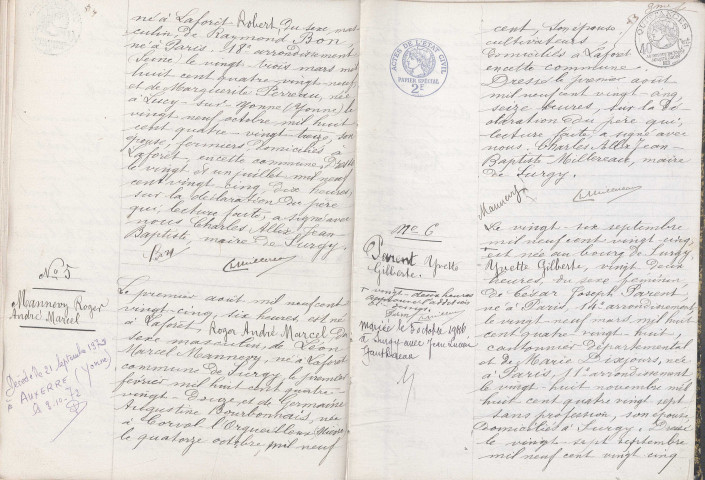 né à Laforêt Robert, du sexe mas
culin de Raymond Bon
né à Paris, 18e arrondissement
(Seine) le vingt trois mars mil
huit cent quatre vingt neuf
et de Marguerite Perreau, née
à Lucy-sur-Yonne (Yonne) le
vingt neuf octobre mil huit
cent quatre-vingt treize, son
épouse, fermiers domiciliés à
Laforêt, en cette commune. Dressé
le vingt et un juillet mil neuf
cent vingt cinq dix heures,
sur la déclaration du père
qui, lecture faite, a signé avec
nous Charles Alix Jean-
Baptiste, maire de Surgy.
Bon
No 5
Mannevy Roger
André Marcel
Décédé le 21 septembre 1972
à AUXERRE (Yonne)
Le premier août mil neuf cent
vingt-cinq, six heures, est né
à Laforêt, Roger André Marcel du
sexe masculin, de Léon
Marcel Mannevy, né à Laforêt
commune de Surgy, le premier
février mil huit cent quatre-
vingt-douze et de Germaine
Augustine Bourbonnais, née
à Corvol l'Orgueilleux Nièvre
le quatorze octobre mil neuf
ACTES DE L'ETAT CIVIL
PAPIER SPÉCIAL
2F
cent, son épouse
cultivateurs
domiciliés à Laforêt
en cette commune.
Dressé le premier août
mil neuf cent vingt cinq
seize heures, sur la dé
claration du père qui,
lecture faite, a signé avec
nous. Charles Alix Jean-
Baptiste Millereau, maire
de Surgy.
Mannevy
No 6
Parent Yvette
Gilberte.
+ vingt-deux heures
mariée le 5 octobre 1946
à Surgy avec Jean Lucien
Le vingt-six septembre
mil neuf cent vingt cinq
est née au bourg de Surgy,
Yvette Gilberte, vingt deux
heures, du sexe féminin,
de César Joseph Parent,
né à Paris, 14e arrondissement,
le vingt neuf mars, mil huit
cent quatre vingt huit
cantonnier départemental
et de Marie Dixjours, née
à Paris, 11e arrondissement
le vingt-huit novembre mil
huit cent quatre vingt sept
sans profession, son épouse
domiciliés à Surgy. Dressé
le vingt-sept septembre
mil neuf cent vingt cinq